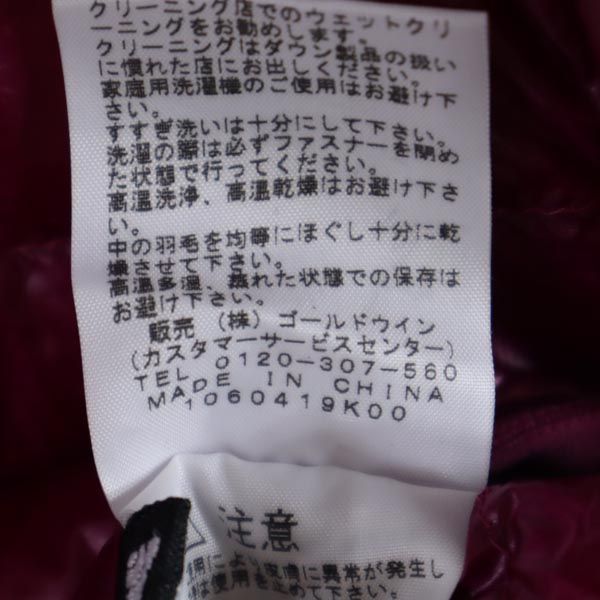 クリーニング店でのウェットクリ
ーニングをお勧めします。
クリーニングはダウン製品の扱い
に慣れた店にお出しください。
家庭用洗濯機のご使用はお避け下
さい。
すすぎ洗いは十分にして下さい。
洗濯の際は必ずファスナーを閉め
た状態で行ってください。
高温洗浄、高温乾燥はお避け下さ
い。
中の羽毛を均等にほぐし十分に乾
燥させて下さい。
高温多湿、蒸れた状態での保存は
お避け下さい。
販売 (株) ゴールドウイン
(カスタマーサービスセンター)
TEL 0120-307-560
MADE IN CHINA
1060419K00
注意
使用により皮膚に異常が発生し
は使用を止めて下さい